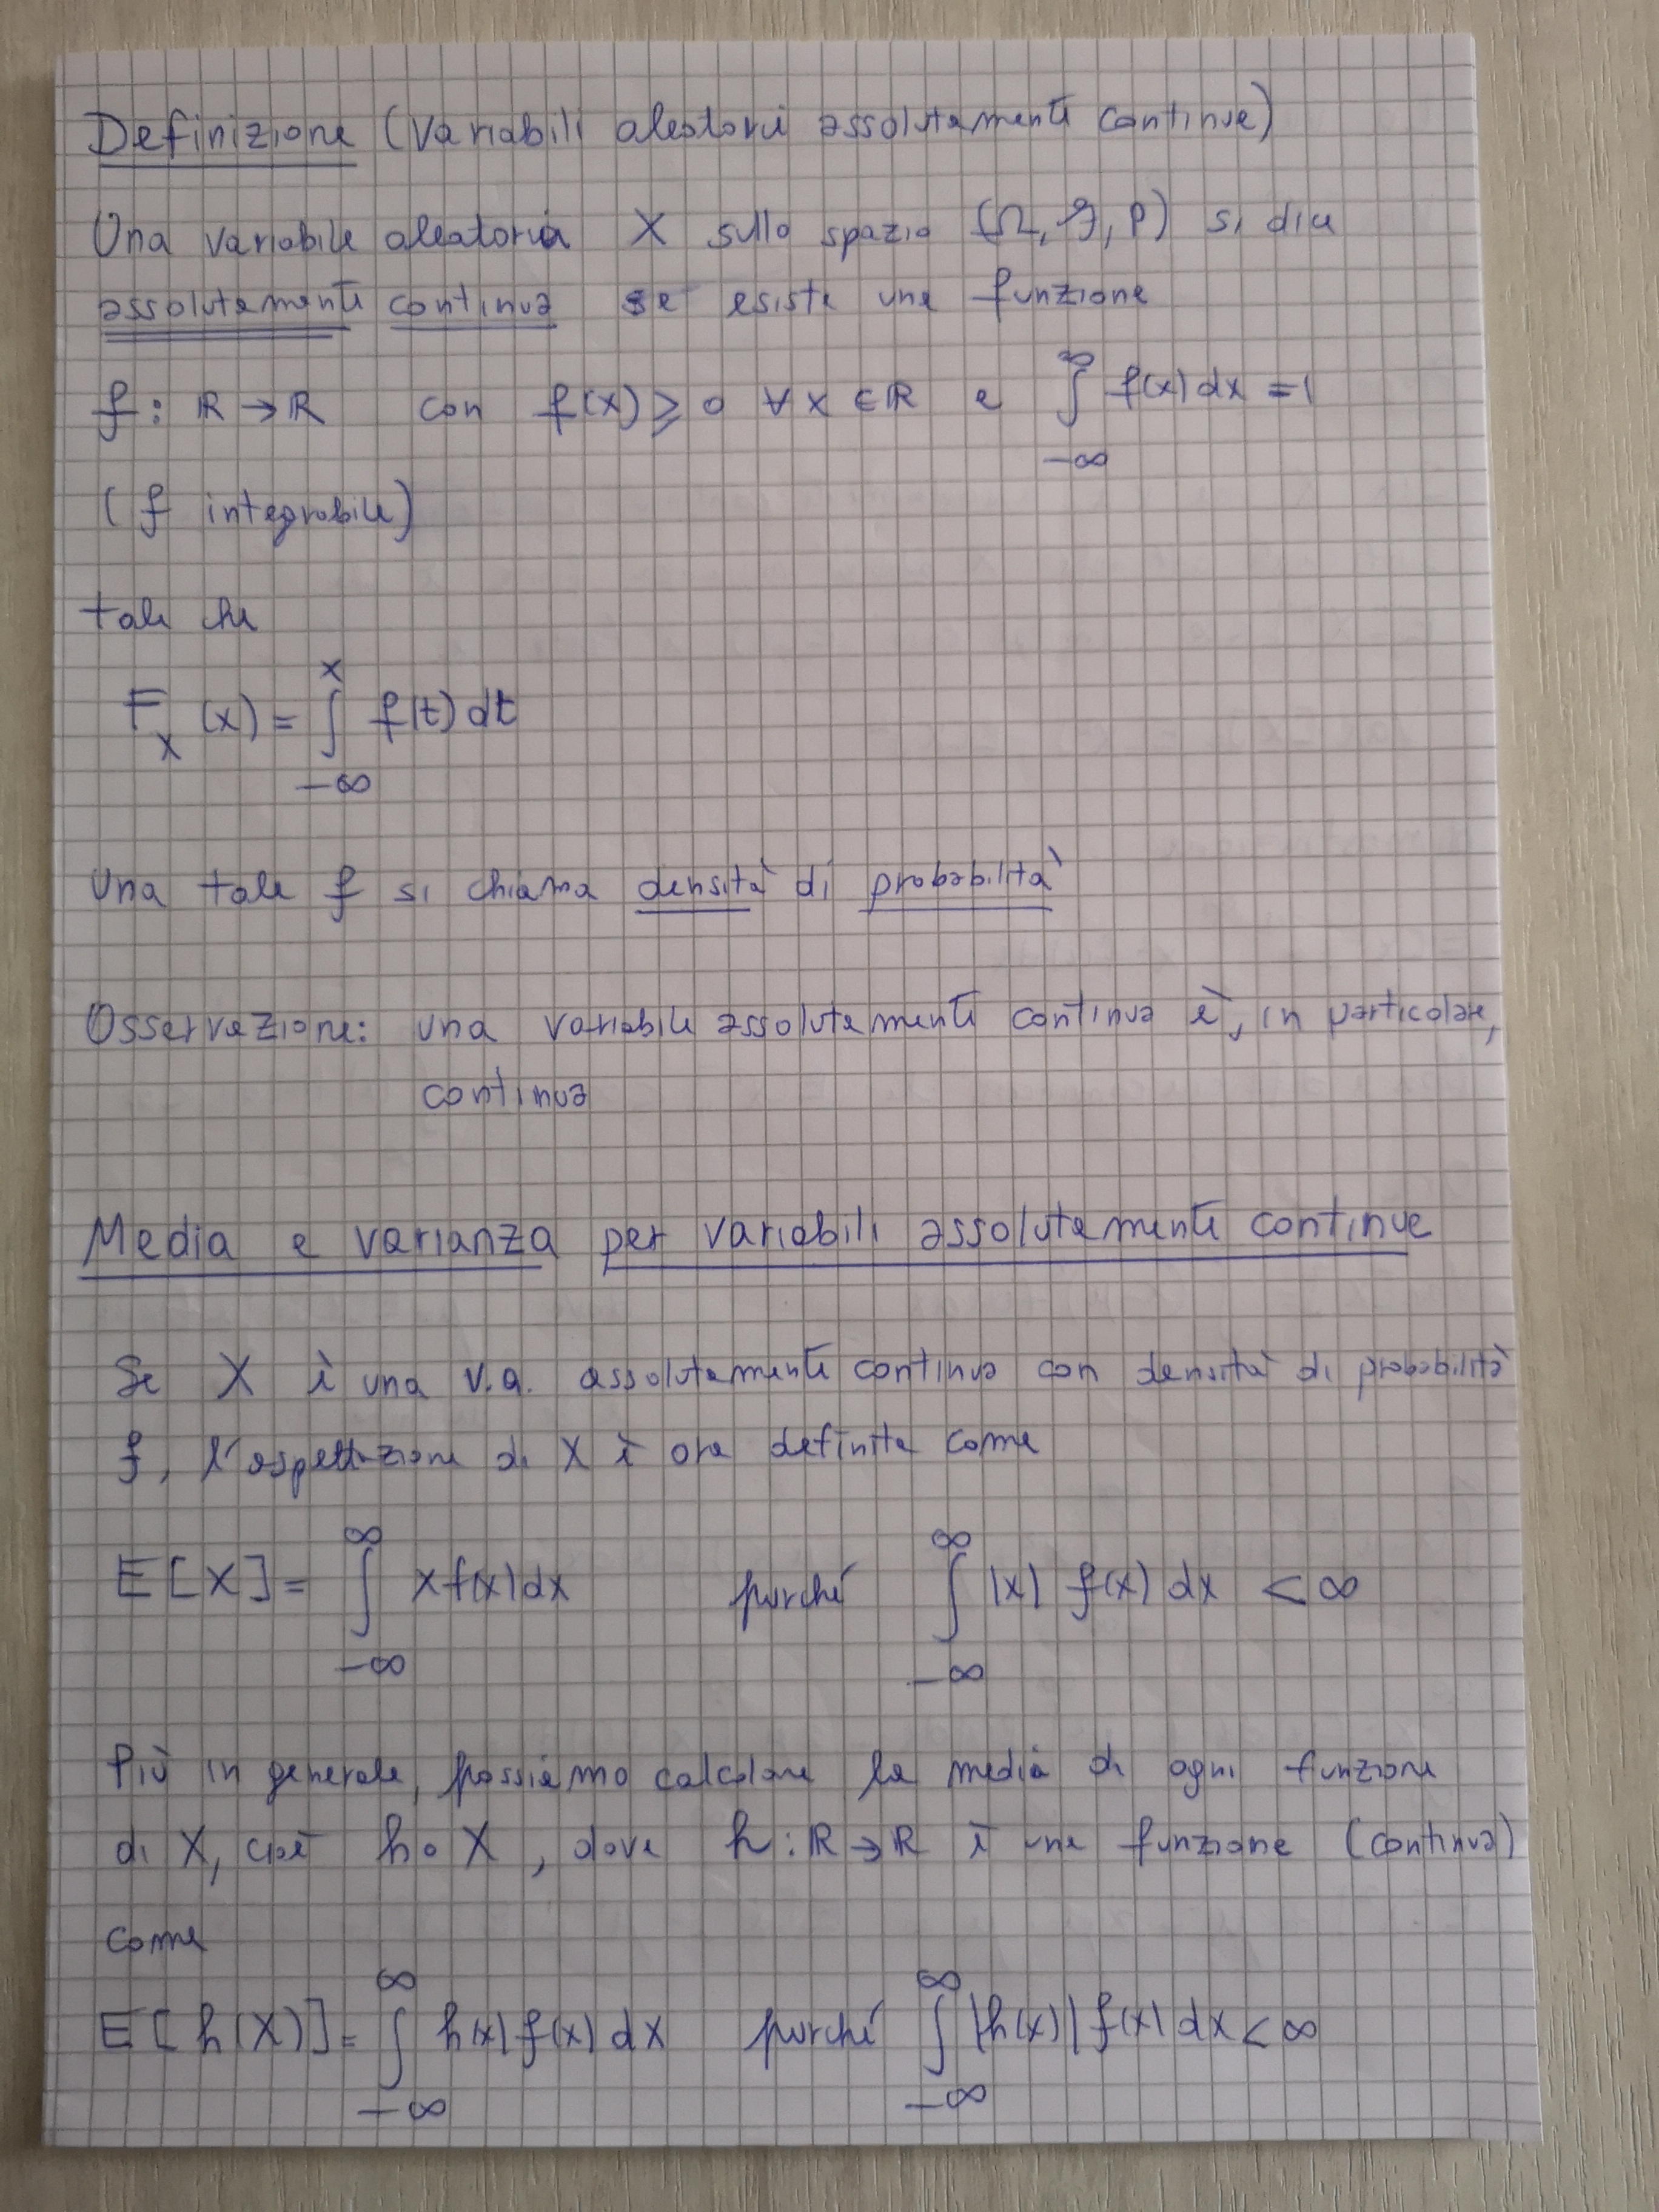 Definizione (Variabili aleatorie assolutamente continue)
Una variabile aleatoria X sullo spazio (Ω, F, P) si dice
assolutamente continua se esiste una funzione
f: ℝ → ℝ con f(x) ≥ 0 ∀ x ∈ ℝ e ∫_{-∞}^{∞} f(x) dx = 1
(f integrabile)
tale che
F_X (x) = ∫_{-∞}^{x} f(t) dt
Una tale f si chiama densità di probabilità
Osservazione: una variabile assolutamente continua è, in particolare,
continua
Media e varianza per variabili assolutamente continue
Se X è una v.a. assolutamente continua con densità di probabilità
f, l'aspettazione di X è ora definita come
E[X] = ∫_{-∞}^{∞} x f(x) dx purché ∫_{-∞}^{∞} |x| f(x) dx < ∞
Più in generale, possiamo calcolare la media di ogni funzione
di X, cioè h∘X, dove h: ℝ → ℝ è una funzione (continua)
come
E[h(X)] = ∫_{-∞}^{∞} h(x) f(x) dx purché ∫_{-∞}^{∞} |h(x)| f(x) dx < ∞